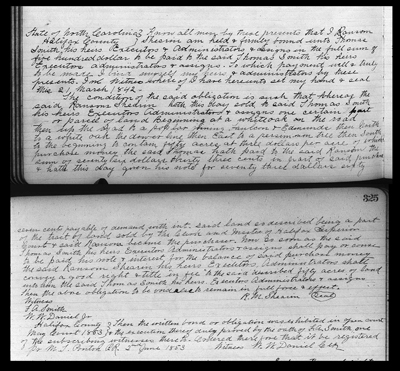 State of North Carolina} Know all men by these presents that I Ransom
Halifax County } Shearin am held & firmly bound unto Thomas
Smith his heirs Executors & Administrators & assigns in the full sum of
five hundred dollars to be paid to the said Thomas Smith his
Executors administrators & assigns. To which payment well & truly
to be made I bind myself my heirs & administrators by these
presents. In Witness whereof I have hereunto set my hand & seal
this 21 March 1842.
The condition of the said obligation is such that whereas the
said Ransom Shearin hath this day sold to said Thomas Smith
his heirs Executors Administrators & assigns one certain
or parcel of land Beginning at a white oak on the road
then up the road to
to a white oak the line then East to a persimmon then South
to the beginning to contain fifty acres at three dollars per acre of which
purchase money the said Thomas hath paid to the said Ransom the
sum of seventy six dollars thirty three cents in part of said purchase
& hath this day given his note for seventy three dollars sixty
325
seven cent payable on demand with int. Said land as described being a part
of the tract of land sold by the Clerk and Master of Halifax Superior
Court & said Ransom became the purchaser. Now so soon as the said
Thomas Smith his heirs Executors Administrators & assigns shall pay or cause
to be paid his note & interest for the balance of said purchase money
the said Ransom Shearin his heirs Executors Administrators shall
convey a good right & title in fee to the said described fifty acres of land
unto him the said Thomas Smith his heirs Executors Administrators & assigns
Then the above obligation to be void else to remain in full force & effect.
Witness R. M. Shearin Seal
F A Smith
W. W. Daniel Jr
Halifax County } Then the written bond or obligation was exhibited in open court
May Court 1853 } & the execution thereof duly proved by the oath of F A Smith one
of the subscribing witnesses thereto. Ordered therefore that it be registered
for M. L. Ponton P.R. 3 June 1853 Witness W. W. Daniel Clk